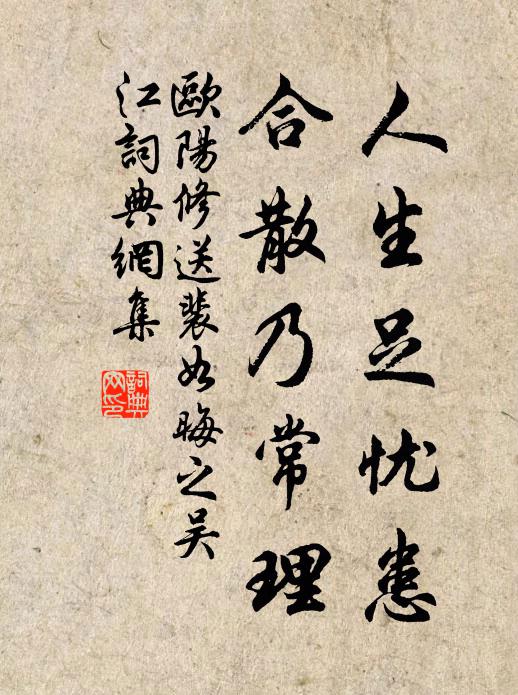 人生足忧患
合散乃常理
歐陽修送裴如晦之吴
江詞典網集
詞典
网印